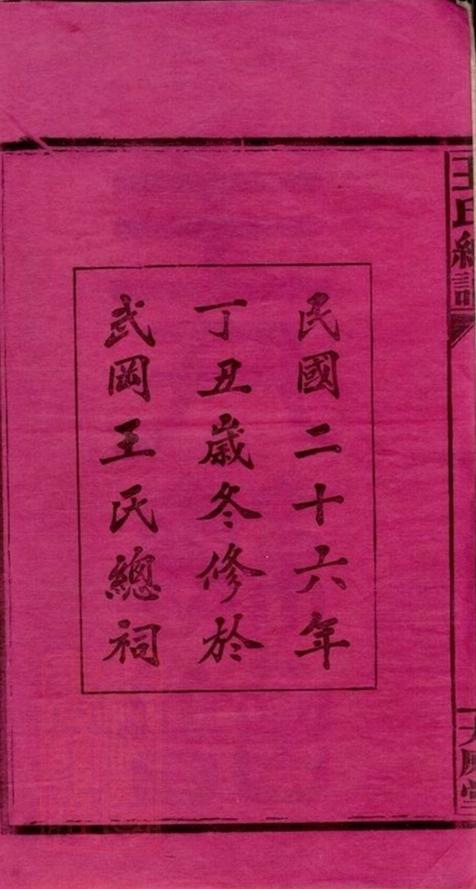 民國二十六年
丁丑歲冬修於
武岡王氏總祠
王氏總譜